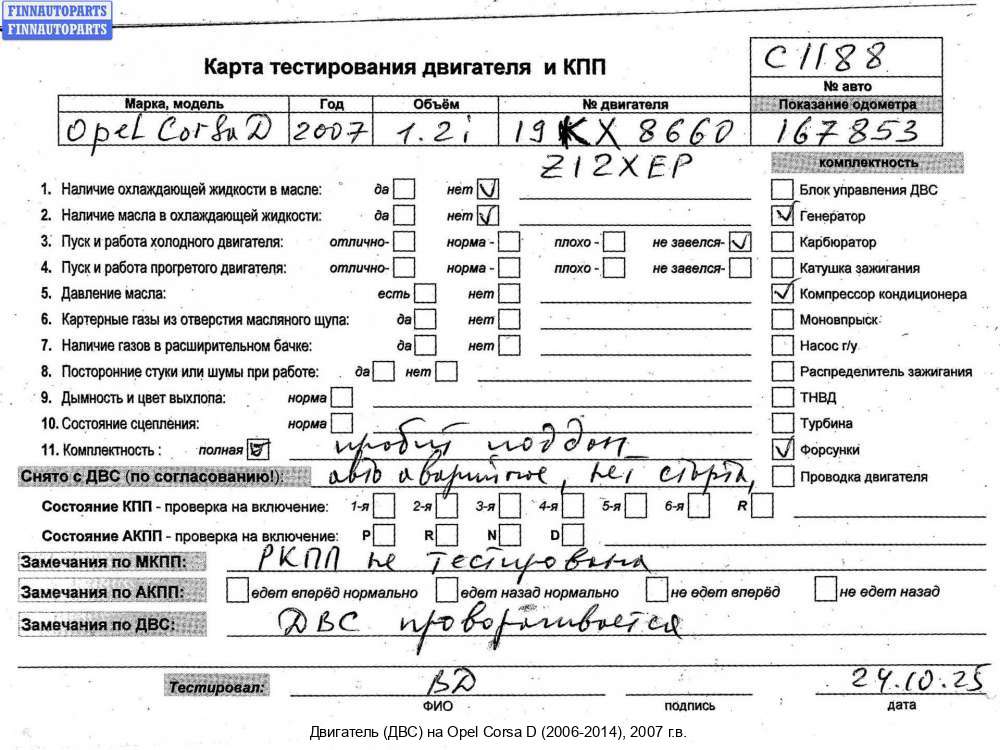 FINNAUTOPARTS
FINNAUTOPARTS
Карта тестирования двигателя и КПП
C1188
№ авто
Марка, модель Год Объём № двигателя Показание одометра
Opel Corsa D 2007 1.2i 19KX8660 167853
Z12XEP
комплектность
1. Наличие охлаждающей жидкости в масле: да нет Блок управления ДВС
2. Наличие масла в охлаждающей жидкости: да нет Генератор
3. Пуск и работа холодного двигателя: отлично- норма - плохо - не завелся- Карбюратор
4. Пуск и работа прогретого двигателя: отлично- норма - плохо - не завелся- Катушка зажигания
5. Давление масла: есть нет Компрессор кондиционера
6. Картерные газы из отверстия масляного щупа: да нет Моновпрыск
7. Наличие газов в расширительном бачке: да нет Насос г/у
8. Посторонние стуки или шумы при работе: да нет Распределитель зажигания
9. Дымность и цвет выхлопа: норма ТНВД
10. Состояние сцепления: норма Турбина
11. Комплектность : полная пробит поддон Форсунки
Снято с ДВС (по согласованию!): авто аварийное, нет старта, Проводка двигателя
Состояние КПП - проверка на включение: 1-я 2-я 3-я 4-я 5-я 6-я R
Состояние АКПП - проверка на включение: P R N D
Замечания по МКПП: РКПП не тестирована
Замечания по АКПП: едет вперёд нормально едет назад нормально не едет вперёд не едет назад
Замечания по ДВС: ДВС проворачивается
Тестировал: ВД 24.10.25
ФИО подпись дата
Двигатель (ДВС) на Opel Corsa D (2006-2014), 2007 г.в.